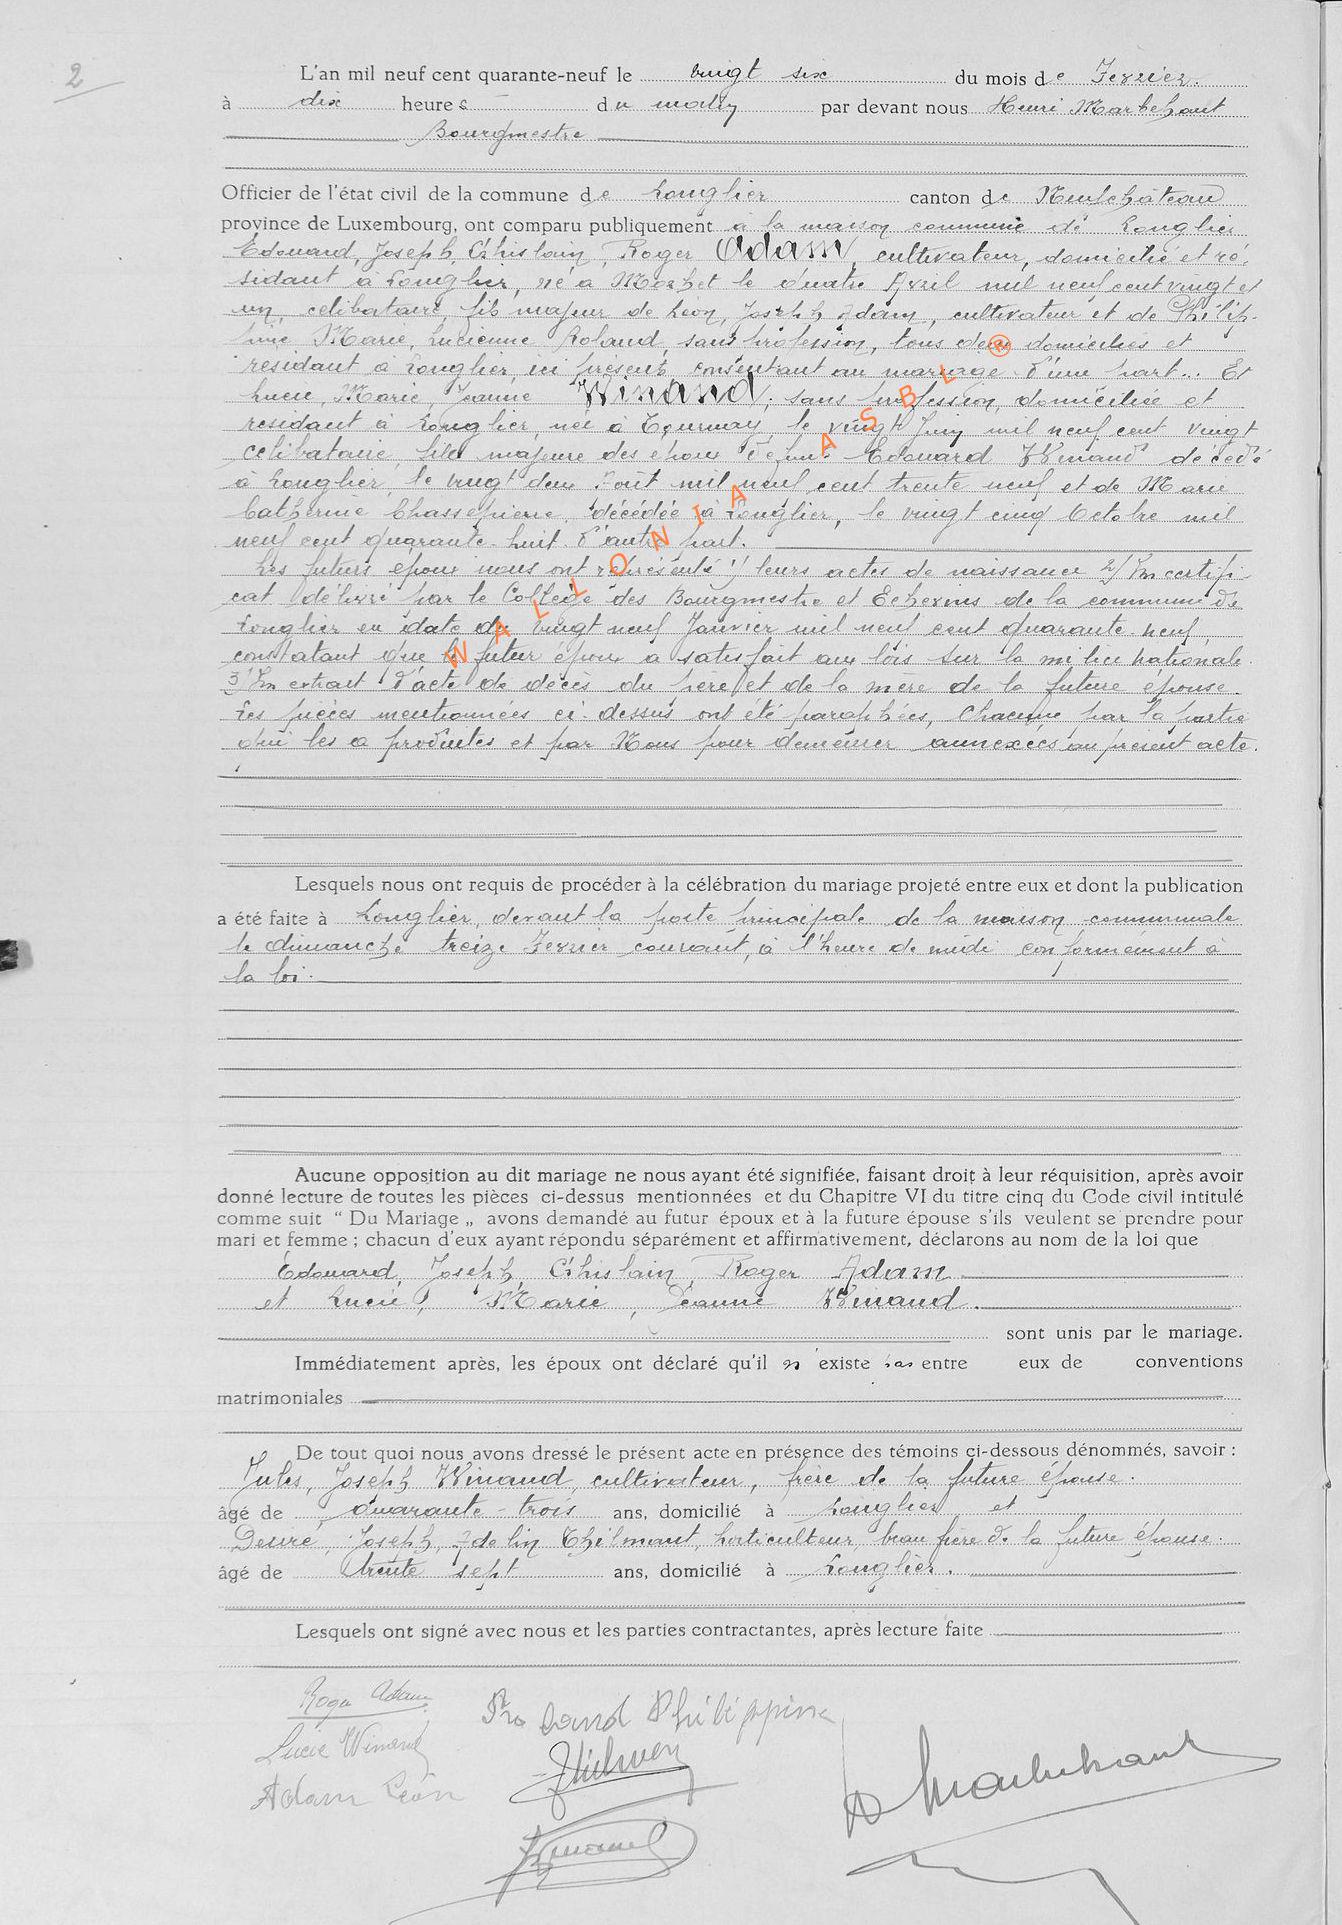 2
L'an mil neuf cent quarante-neuf le vingt six du mois de Fevrier.
à dix heures du matin par devant nous Henri Marbehant
Bourgmestre
Officier de l'état civil de la commune de Longlier canton de Neufchâteau
province de Luxembourg, ont comparu publiquement à la maison commune de Longlier
Edouard, Joseph, Ghislain, Roger Adam, cultivateur, domicilié et ré-
sidant à Longlier, né à Morhet le quatre Avril mil neuf cent vingt et
un, célibataire, fils majeur de Léon, Joseph Adam, cultivateur et de Philip-
pine Marie, Lucienne Roland, sans profession, tous deux domiciliés et
residant à Longlier, ici présents, consentant au mariage d'une part.. Et
Lucie, Marie, Jeanne Winand, sans profession, domiciliée et
residant à Longlier, née à Tournay, le vingt Juin mil neuf cent vingt
célibataire, fille majeure des époux Edouard Winand décédé
à Longlier, le vingt deux Août mil neuf cent trente neuf et de Marie
Catherine Chassepierre, décédée à Longlier, le vingt cinq Octobre mil
neuf cent quarante-huit d'autre part.
Les futurs époux nous ont représenté 1/ leurs actes de naissance 2/ Un certifi-
cat délivré par le Collège des Bourgmestre et Echevins de la commune de
Longlier en date du vingt neuf Janvier mil neuf cent quarante-neuf,
constatant que le futur époux a satisfait aux lois sur la milice nationale.
3/ Un extrait d'acte de décès du père et de la mère de la future épouse.
Les pièces mentionnées ci-dessus ont été paraphées, chacune par la partie
qui les a produites et par Nous pour demeurer annexées au présent acte.
WALLONIA ASBL ®
Lesquels nous ont requis de procéder à la célébration du mariage projeté entre eux et dont la publication
a été faite à Longlier, devant la porte principale de la maison communale
le dimanche treize Fevrier courant, à l'heure de midi conformément à
la loi.
Aucune opposition au dit mariage ne nous ayant été signifiée, faisant droit à leur réquisition, après avoir
donné lecture de toutes les pièces ci-dessus mentionnées et du Chapitre VI du titre cinq du Code civil intitulé
comme suit “ Du Mariage „ avons demandé au futur époux et à la future épouse s'ils veulent se prendre pour
mari et femme ; chacun d'eux ayant répondu séparément et affirmativement, déclarons au nom de la loi que
Edouard, Joseph, Ghislain, Roger Adam
et Lucie, Marie, Jeanne Winand.
sont unis par le mariage.
Immédiatement après, les époux ont déclaré qu'il n'existe pas entre eux de conventions
matrimoniales
De tout quoi nous avons dressé le présent acte en présence des témoins ci-dessous dénommés, savoir :
Jules, Joseph Winand, cultivateur, frère de la future épouse.
âgé de quarante-trois ans, domicilié à Longlier et
Desiré, Joseph, Adelin Thilmant, horticulteur, beau frère de la future épouse.
âgé de trente sept ans, domicilié à Longlier.
Lesquels ont signé avec nous et les parties contractantes, après lecture faite
Roger Adam
Roland Philippine
Lucie Winand
Adam Léon
Winand